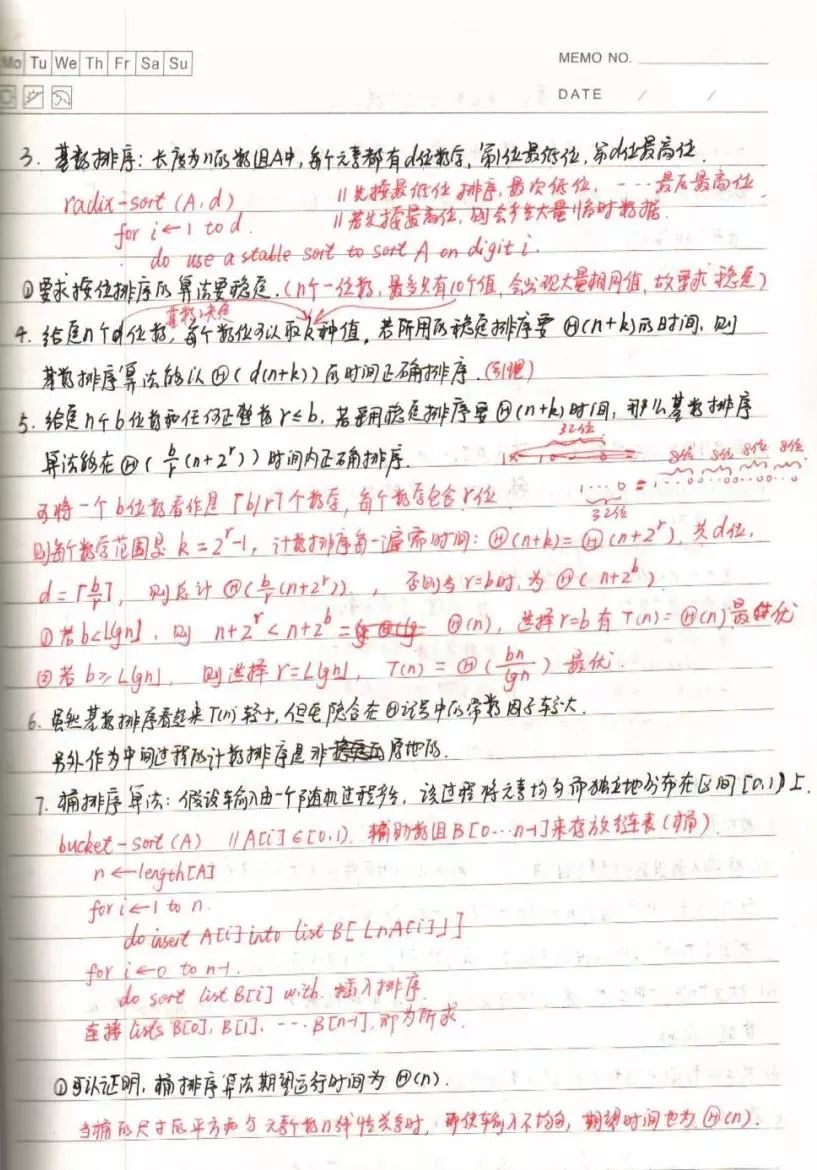 Mo Tu We Th Fr Sa Su
MEMO NO.
DATE / /
3. 基数排序: 长度为n的数组A中, 每个元素都有d位数字, 第1位最低位, 第d位最高位.
radix-sort (A, d) // 先按最低位排序, 最次低位, ---最后最高位
for i ← 1 to d. // 若先按最高位, 则会产生大量临时数据.
do use a stable sort to sort A on digit i.
①要求按位排序的算法要稳定. (n个一位数, 最多只有10个值, 会出现大量相同值, 故要求稳定)
基数决定
4. 给定n个d位数, 每个数位可以取k种值, 若所用的稳定排序要 Θ(n+k)的时间, 则
基数排序算法能以 Θ(d(n+k)) 的时间正确排序. (引理)
5. 给定n个b位数和任何正整数 r≤b, 若采用稳定排序要 Θ(n+k)时间, 那么基数排序
算法能在 Θ(b/r(n+2^r)) 时间内正确排序.
32位
8位 8位 8位 8位
1····0 = 1···00···00···00···0
32位
可将一个b位数看作是 ⌈b/r⌉个数字, 每个数字包含r位
则每个数字范围是 k=2^r-1, 计数排序每一遍需时间: Θ(n+k)=Θ(n+2^r), 共d位,
d=⌈b/r⌉, 则总计 Θ(b/r(n+2^r)), 否则当r=b时, 为 Θ(n+2^b)
①若b<⌊lgn⌋, 则 n+2^r < n+2^b = Θ(n), 选择r=b有 T(n)=Θ(n)最优
②若 b≥⌊lgn⌋, 则选择 r=⌊lgn⌋, T(n)=Θ(bn/lgn) 最优
6. 虽然基数排序看起来T(n)较小, 但它隐含在Θ记号中的常数因子较大.
另外作为中间过程的计数排序是非原地的.
7. 桶排序算法: 假设输入由一个随机过程产生, 该过程将元素均匀而独立地分布在区间[0,1)上.
bucket-sort (A) // A[i]∈[0,1), 辅助数组B[0···n-1]来存放链表(桶)
n ← length[A]
for i ← 1 to n.
do insert A[i] into list B[⌊nA[i]⌋]
for i ← 0 to n-1.
do sort list B[i] with 插入排序
连接 lists B[0], B[1], ---B[n-1], 即为所求.
①可以证明, 桶排序算法期望运行时间为 Θ(n).
当桶的尺寸的平方和与元素个数n线性关系时, 即使输入不均匀, 期望时间也为 Θ(n).